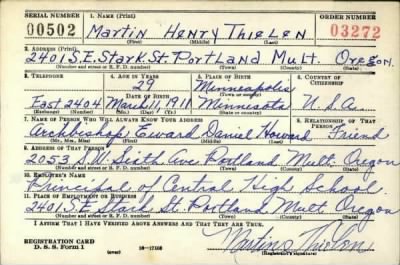 SERIAL NUMBER 1. NAME (Print) ORDER NUMBER
00502 Martin Henry Thielen 03272
(First) (Middle) (Last)
2. ADDRESS (Print)
2401 S.E. Stark St. Portland Mult. Oregon.
(Number and street or R. F. D. number) (Town) (County) (State)
3. TELEPHONE 4. AGE IN YEARS 5. PLACE OF BIRTH 6. COUNTRY OF CITIZENSHIP
29 Minneapolis
DATE OF BIRTH (Town or county)
East 2404 March 11, 1911 Minnesota U.S.A.
(Exchange) (Number) (Mo.) (Day) (Yr.) (State or country)
7. NAME OF PERSON WHO WILL ALWAYS KNOW YOUR ADDRESS 8. RELATIONSHIP OF THAT PERSON
Archbishop Edward Daniel Howard Friend
(Mr., Mrs., Miss) (First) (Middle) (Last)
9. ADDRESS OF THAT PERSON
2053 S.W. Sixth Ave Portland Mult. Oregon
(Number and street or R. F. D. number) (Town) (County) (State)
10. EMPLOYER'S NAME
Principal of Central High School.
11. PLACE OF EMPLOYMENT OR BUSINESS
2401 S.E. Stark St. Portland Mult Oregon
(Number and street or R. F. D. number) (Town) (County) (State)
I AFFIRM THAT I HAVE VERIFIED ABOVE ANSWERS AND THAT THEY ARE TRUE.
REGISTRATION CARD
D. S. S. Form 1 (over) 16-17105 Martin Thielen
(Registrant's signature)